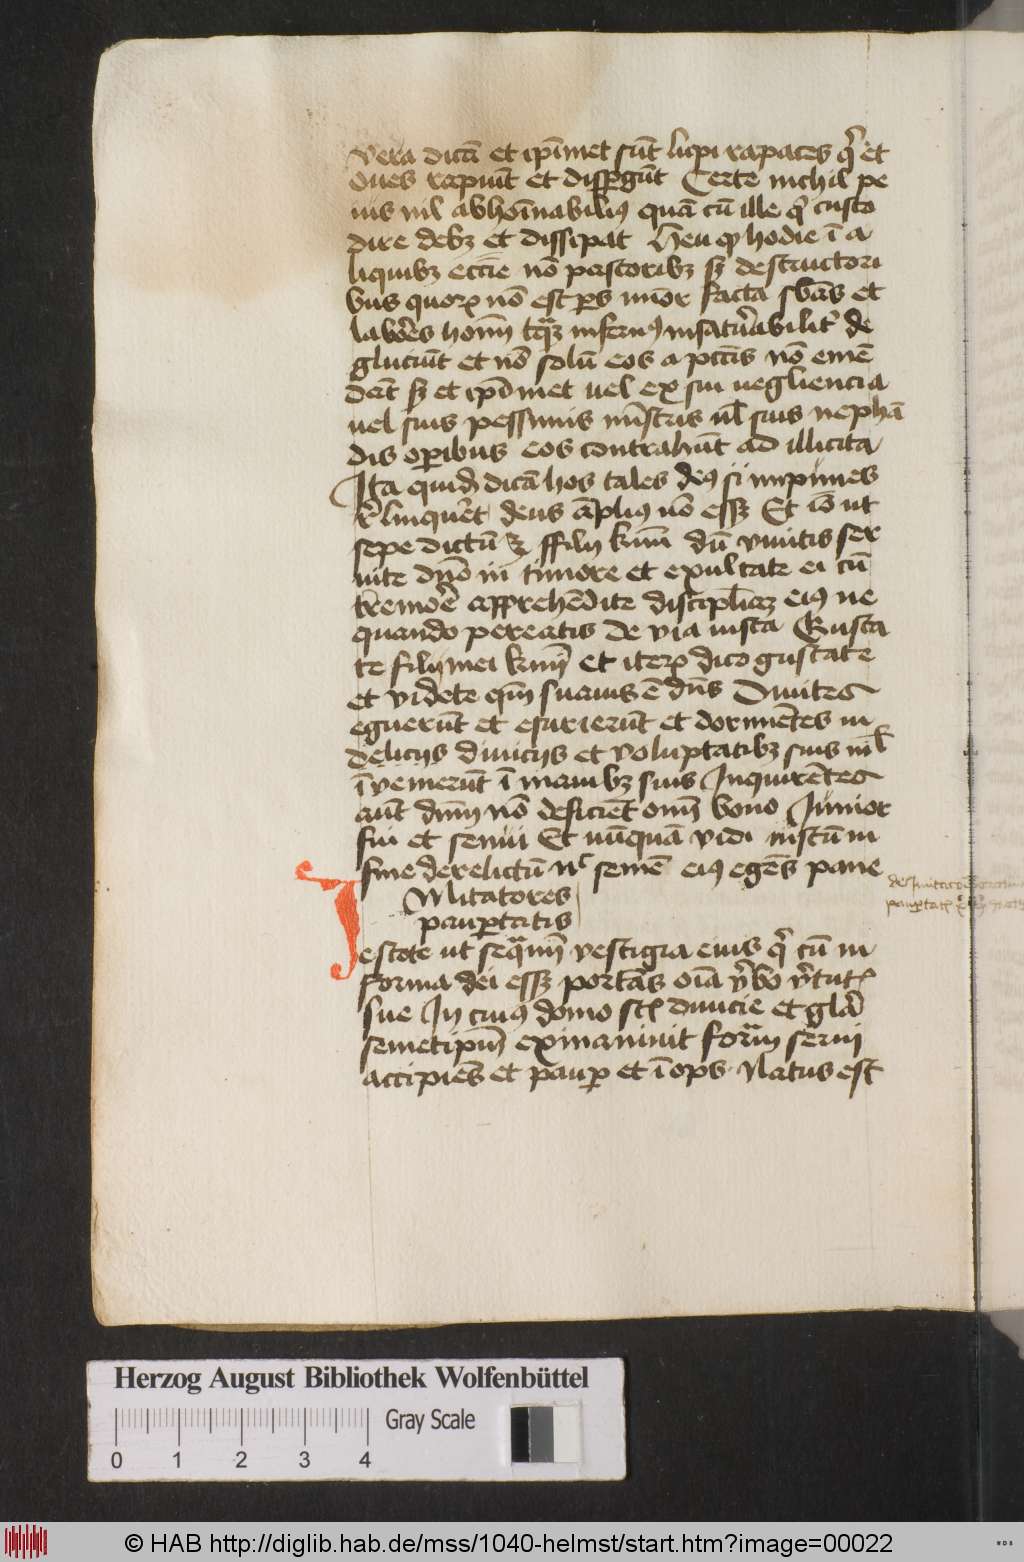 vera dicā et ip̄imet sūt lupi rapaces q̄ et
oues rapiūt et disp̄gūt Certe nichil pe
ius nl̄ abhoīnabiliꝰ quā cū ille q̄ custo
dire debꝫ et dissipat Heu ꝙ hodie ī a
liquibꝫ eccīe nō pastoribꝫ sꝫ destructori
bus quoꝝ nō est ps minor facta et
labōes hoīm tq̄ꝫ infernꝰ insatu̇abilit̄ de
gluciūt et nō solū eos a pctīs nō emē
dēt sꝫ et ip̄imet uel ex sui negliencia
uel suis pessimis mīstris ul̄ suis nephā
dis op̄ibus eos contrahūt ad illicita
Ita quid̄ dicā hos tales deꝰ si impunes
r̄linqu̇et deus āpliꝰ nō essꝫ Et iō ut
sepe dictū ꝫ ffilij km̄i dū viuitis ser
uite dn̄o in timore et exultate ei cū
tremōe apprehēdite disciplīaꝫ eiꝰ ne
quando pereatis de via iusta Gusta
te filij mei km̄i et iterꝝ dico gustate
et videte qm̄ suauis ē dn̄s Diuites
eguerūt et esurierūt et dormiētes in
delicijs diuicijs et voluptatibꝫ suis nl̄
īvenerūt ī manibꝫ suis Inquirētes
aūt dnm̄ nō deficiēt omī bono Iunior
fui et senui Et nūquā vidi iustū in
fine derelictū nͨ semē eiꝰ egēs pane
IMitatores
paup̄tatis
estote ut seqᵃmī vestigia eius q̄ cū in
forma dei essꝫ portās oīa v̄bo v̄tut̄
sue In cuiꝰ domo st̄ diuicie et gl̄a
semetip̄m exinaniuit formā serui
accipiēs et paup̄ et īops Natus est
Herzog August Bibliothek Wolfenbüttel
Gray Scale
0 1 2 3 4
© HAB http://diglib.hab.de/mss/1040-helmst/start.htm?image=00022